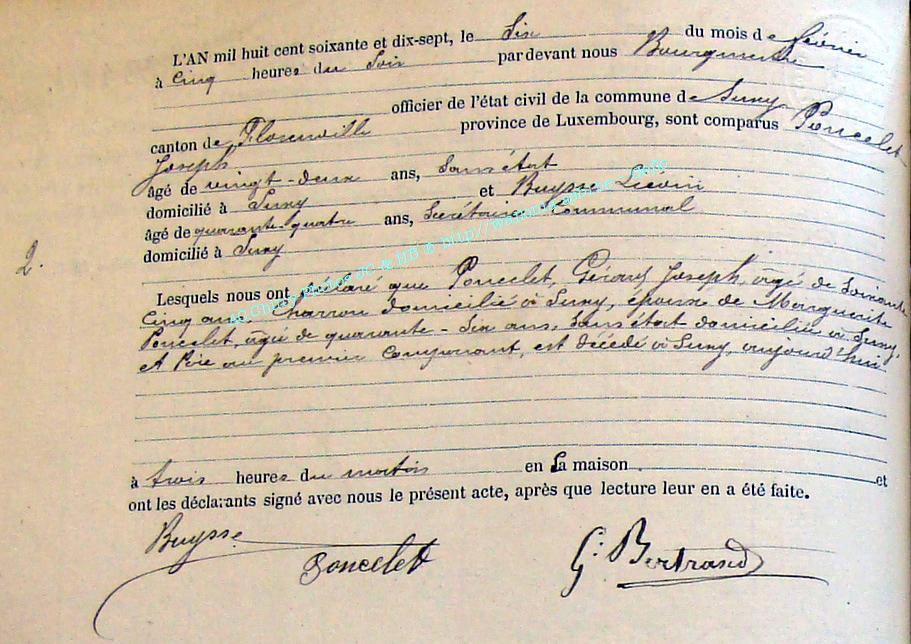 L'AN mil huit cent soixante et dix-sept, le Six du mois de février
à Cinq heures du Soir par devant nous Bourgmestre
officier de l'état civil de la commune de Suxy
canton de Florenville province de Luxembourg, sont comparus Poncelet
Joseph
âgé de vingt-deux ans, Sans état
domicilié à Suxy et Buysse Liévin
âgé de quarante-quatre ans, Secrétaire Communal
domicilié à Suxy
2.
Lesquels nous ont déclaré que Poncelet, Gérard, Joseph, âgé de Soixante
Cinq ans, Charron domicilié à Suxy, époux de Marguerite
Poncelet, âgée de quarante-Six ans, Sans état domiciliée à Suxy,
et Père au premier Comparant, est décédé à Suxy, aujourd'hui
à trois heures du matin en Sa maison. et
ont les déclarants signé avec nous le présent acte, après que lecture leur en a été faite.
Buysse
Poncelet
G. Bertrand